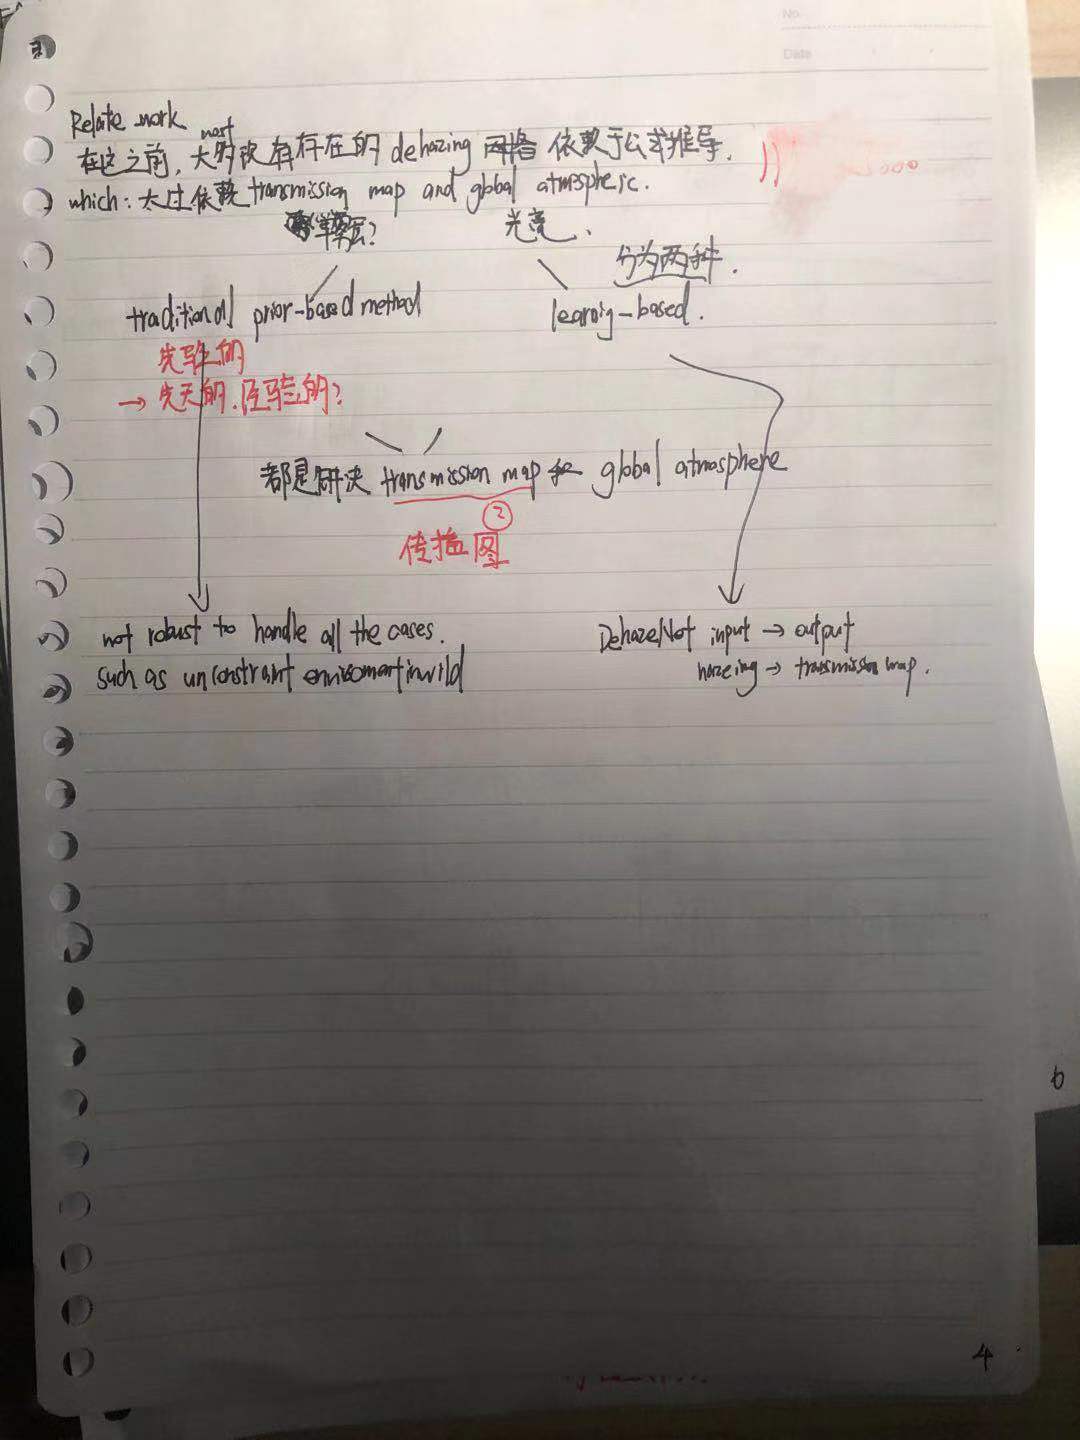 No.
Date
Relate work
most
在这之前，大多改有存在的 dehazing 网络 依赖于公式推导.
which: 太过依赖 transmission map and global atmospheric.
光亮.
分为两种.
traditional prior-based method
learnig-based.
先验的
→ 先天的.经验的?
都是解决 transmission map 和 global atmosphere
②
传播图
not robust to handle all the cases.
such as unconstraint enviroment in wild
DehazeNet input → output
hazeimg → transmission map.
6
4